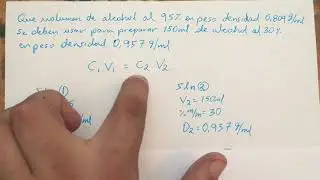 Que volumen de alcohol al 95% en peso densidad 0,809 g/ml
se deben usar para preparar 150 ml de alcohol al 30%
en peso densidad 0,957 g/ml
C₁ V₁ = C₂ V₂
①
Sln ②
V₂ = 150ml
% m/m = 30
D₂ = 0,957 g/ml